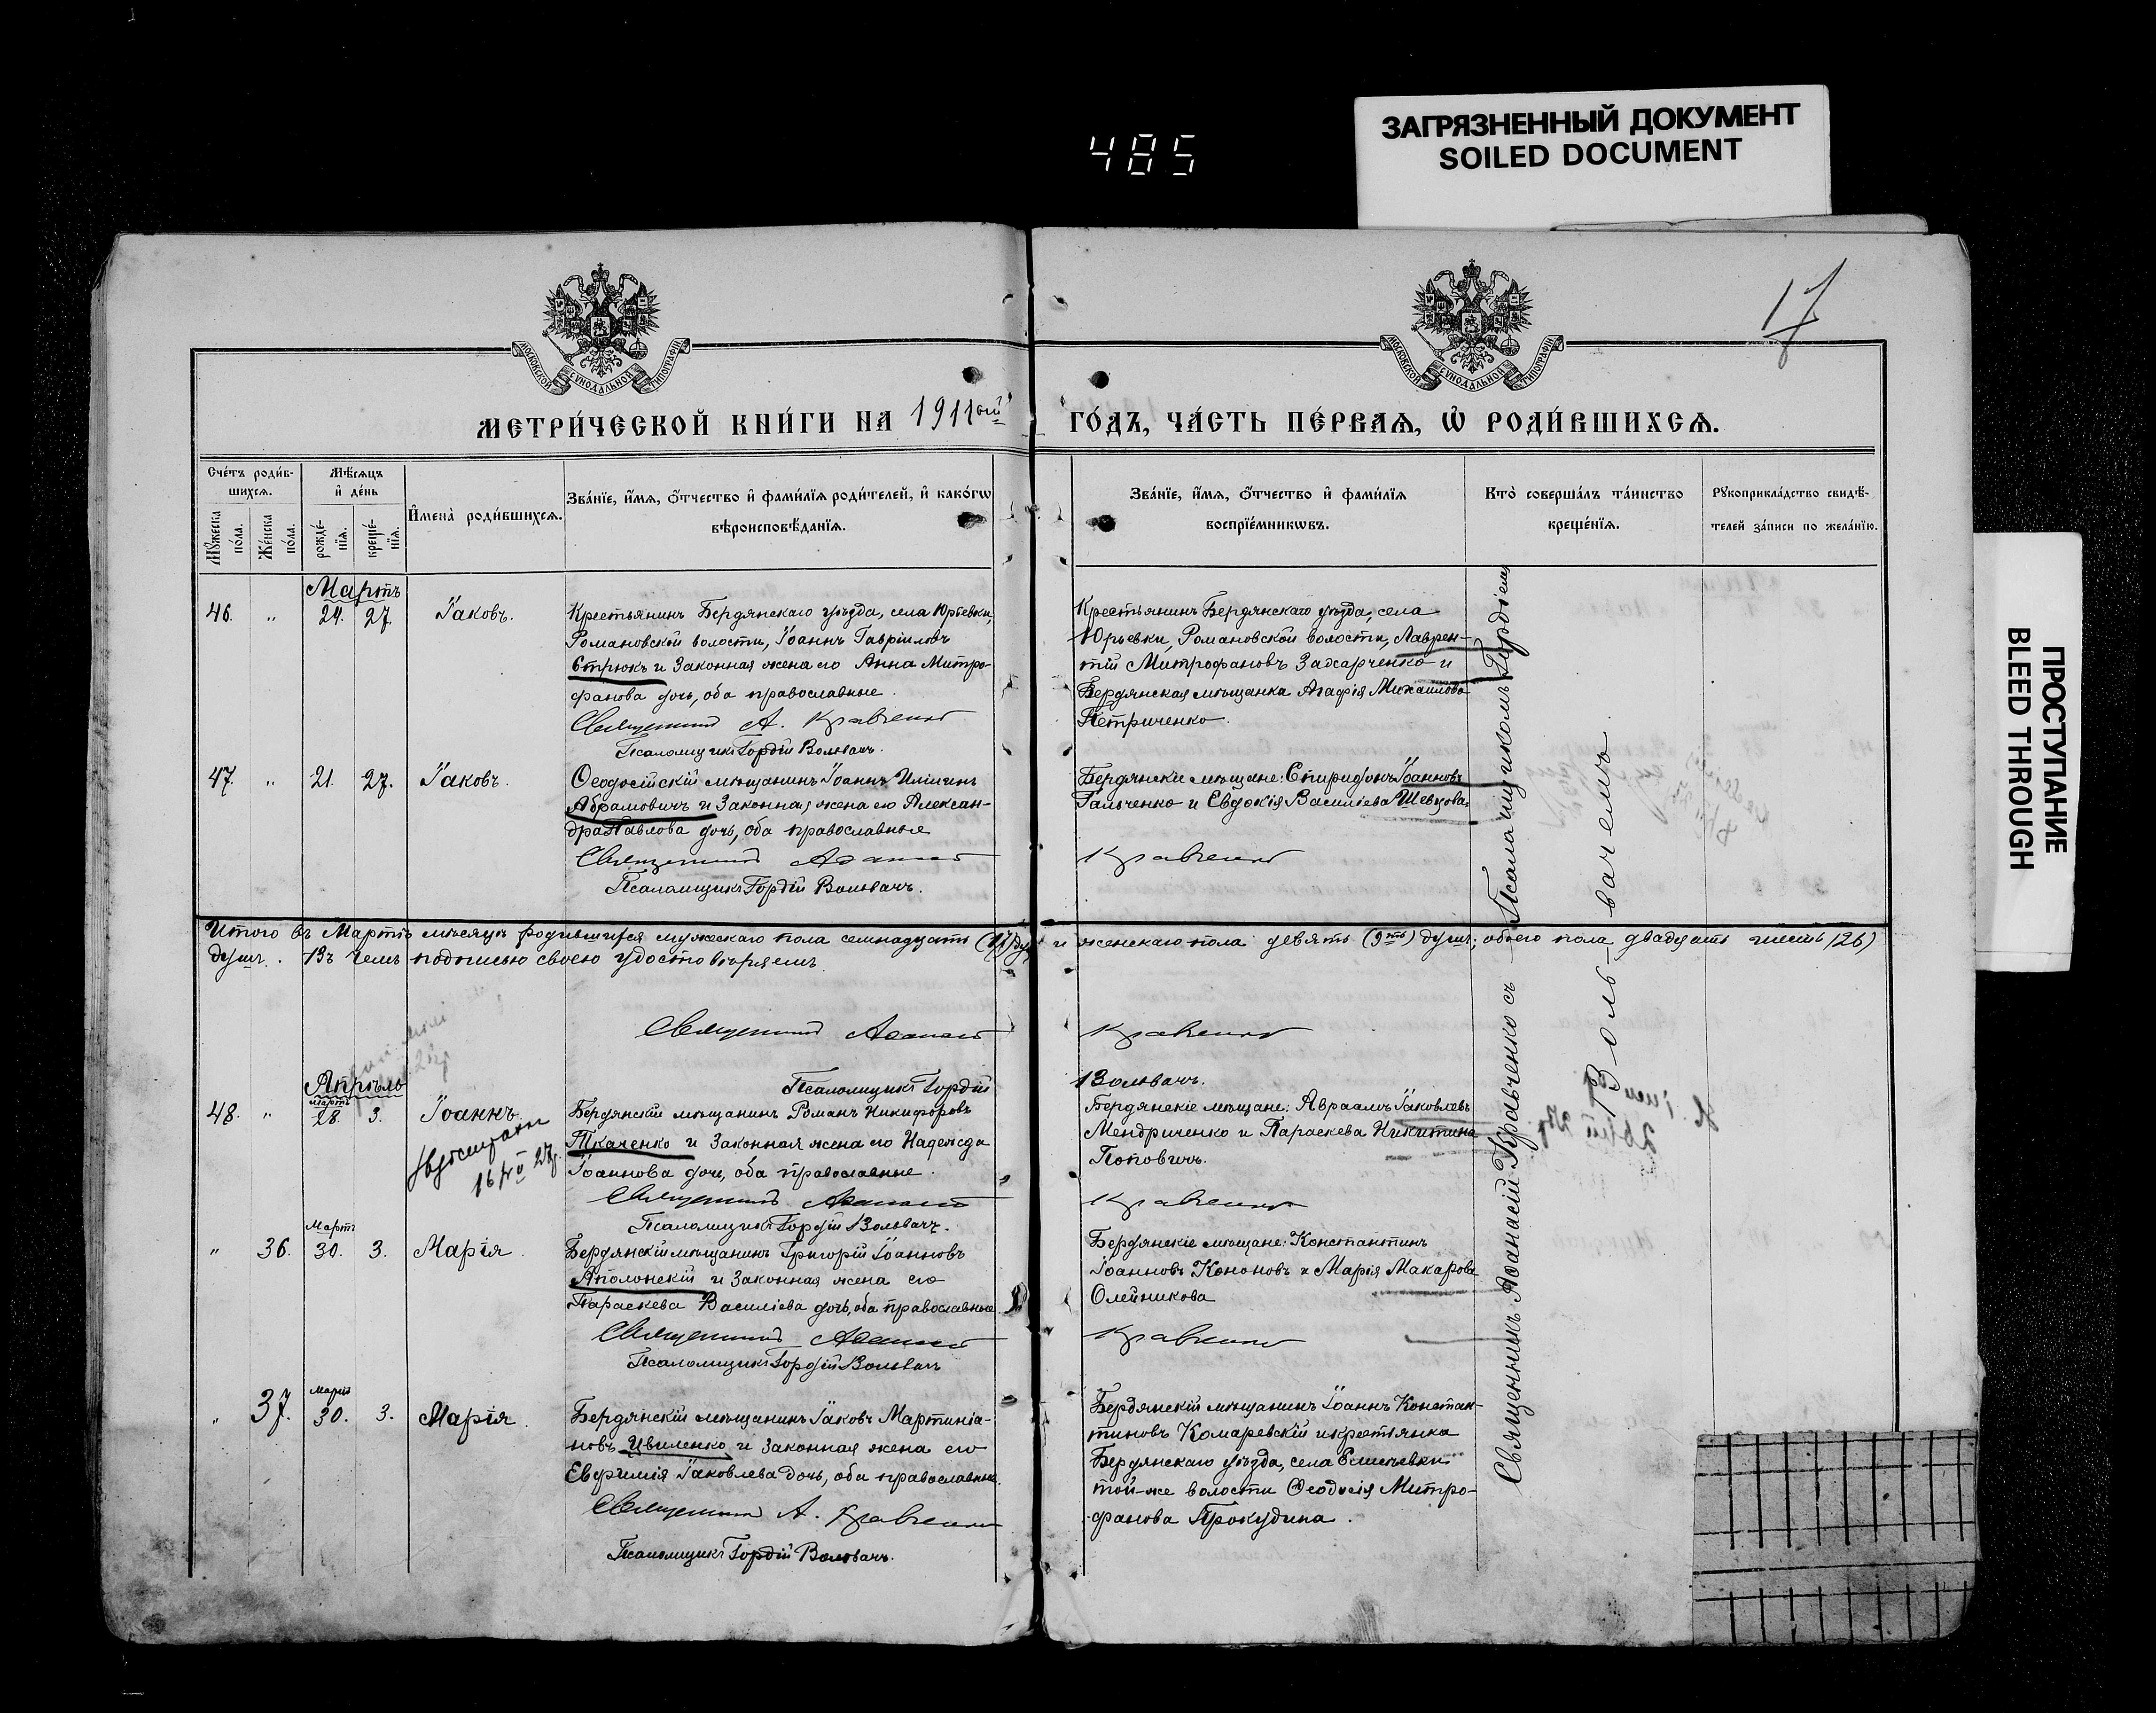 485
ЗАГРЯЗНЕННЫЙ ДОКУМЕНТ
SOILED DOCUMENT
ПРОСТУПАНИЕ
BLEED THROUGH
17
МОСКОВСКОЙ СѴНОДАЛЬНОЙ ТИПОГРАФІИ
МОСКОВСКОЙ СѴНОДАЛЬНОЙ ТИПОГРАФІИ
МЕТРИ́ЧЕСКОЙ КНИ́ГИ НА 1911ый ГО́ДЪ, ЧА́СТЬ ПЕ́РВАѦ, Ѡ РОДИ́ВШИХСѦ.
Сче́тъ роди́в-
шихсѧ.
Му́жеска по́ла.
Же́нска по́ла.
Мѣ́сѧцъ
и де́нь
рожде́-
нїѧ.
креще́-
нїѧ.
Имена̀ роди́вшихсѧ.
Зва́нїе, и́мѧ, о́тчество и фами́лїѧ роди́телей, и како́гѡ
вѣроисповѣ́данїѧ.
Зва́нїе, и́мѧ, о́тчество и фами́лїѧ
воспрїе́мникѡвъ.
Кто̀ соверша́лъ та́инство
креще́нїѧ.
Рꙋкоприкла́дство свидѣ́-
телей за́писи по жела́нїю.
Мартъ
46. " 24. 27. Іаковъ.
Крестьянинъ Бердянскаго уѣзда, села Юрьевки,
Романовской волости, Іоаннъ Гавріиловъ
Стрюкъ и законная жена его Анна Митро-
фанова дочь, оба православные.
Священникъ А. Кравченко
Псаломщикъ Гордій Вольвачъ.
Крестьянинъ Бердянскаго уѣзда, села
Юрьевки, Романовской волости, Лаврен-
тій Митрофановъ Захарченко и
Бердянская мѣщанка Агафія Михаилова
Петриченко.
47. " 21. 27. Іаковъ.
Ѳеодосійскій мѣщанинъ Іоаннъ
Абрамовичъ и законная жена его Алексан-
дра Павлова дочь, оба православные
Священникъ Аѳанасій
Псаломщикъ Гордій Вольвачъ.
Бердянскіе мѣщане: Спиридонъ Іоанновъ
Гальченко и Евдокія Василіева Шевцова.
Кравченко
Итого въ Мартѣ мѣсяцѣ родившихся мужескаго пола семнадцать (17) душъ и женскаго пола девять (9ть) душъ; обоего пола двадцать шесть (26)
душъ. Въ чемъ подписью своею удостовѣряемъ.
Священникъ Аѳанасій Кравченко
Псаломщикъ Гордій Вольвачъ.
Апрѣль
Мартъ
48. " 28. 3. Іоаннъ.
Бердянскій мѣщанинъ Романъ Никифоровъ
Ткаченко и законная жена его Надежда
Іоаннова дочь, оба православные.
Священникъ Аѳанасій
Псаломщикъ Гордій Вольвачъ.
Бердянскіе мѣщане: Авраамъ Іаковлевъ
Мендриченко и Параскева Никитина
Поповичъ.
Кравченко
Мартъ
" 36. 30. 3. Марія.
Бердянскій мѣщанинъ Григорій Іоанновъ
Аполонскій и законная жена его
Параскева Василіева дочь, оба православные.
Священникъ Аѳанасій
Псаломщикъ Гордій Вольвачъ
Бердянскіе мѣщане: Константинъ
Іоанновъ Кононовъ и Марія Макарова
Олейникова
Кравченко
Мартъ
" 37. 30. 3. Марія.
Бердянскій мѣщанинъ Іаковъ Мартиніа-
новъ Цвиленко и законная жена его
Евфимія Іаковлева дочь, оба православные.
Священникъ А. Кравченко
Псаломщикъ Гордій Вольвачъ.
Бердянскій мѣщанинъ Іоаннъ Констан-
тиновъ Комаревскій и крестьянка
Бердянскаго уѣзда, села
той-же волости Ѳеодосія Митро-
фанова Прокудина.
Священникъ Аѳанасій Кравченко съ Псаломщикомъ Гордіемъ
Вольвачемъ.